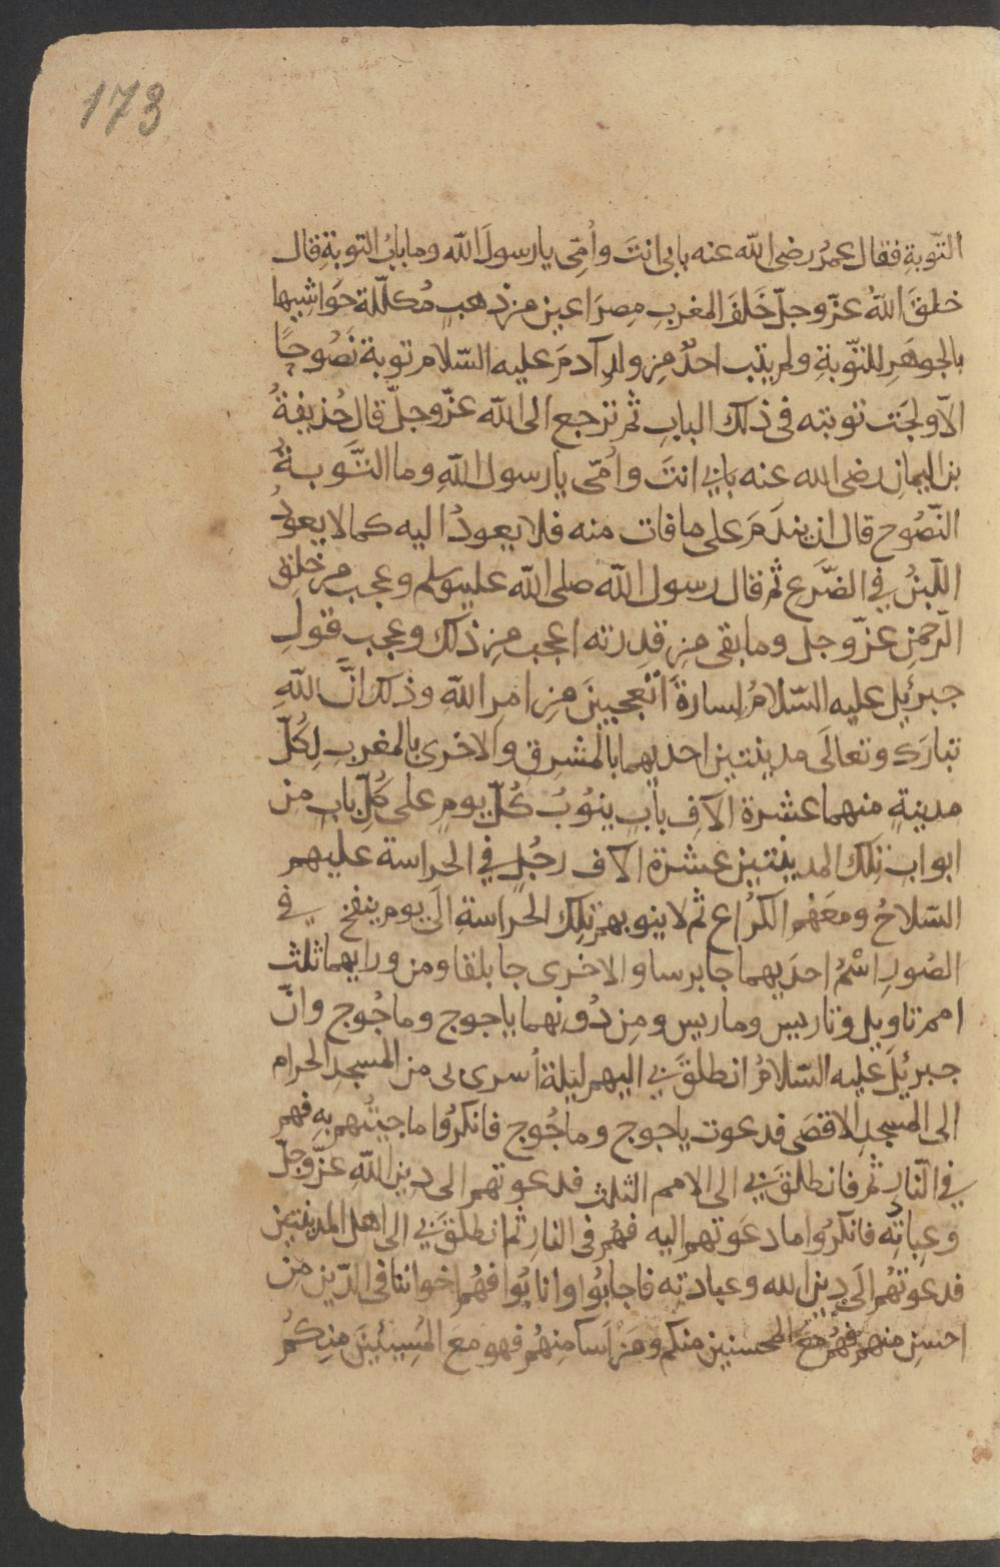 173
التّوبةِ فقال عمرُ رضى الله عنه بابى انتَ وأُمّى يا رسولَ الله وما بابُ التوبةِ قال
خلقَ اللهُ عزّ وجلّ خَلفَ المغربِ مِصرَاعين من ذهبٍ مُكلّلة حَوَاشيها
بالجوهَرِ للتّوبةِ ولم يتب احدٌ مِن ولدِ آدمَ عليه السّلام توبة نَصُوحًا
الاّ ولَجَت توبته فى ذلك البابِ ثم ترجع الى الله عزّ وجلّ قال حُذيفةُ
بن اليمانِ رضى الله عنه بابي انتَ وأُمّى يا رسول اللهِ وما التَّوبةُ
النّصُوح قال ان يندَمَ على ما فات منه فلا يعودُ اليه كما لا يعودُ
اللّبنُ في الضَّرع ثم قال رسول الله صلى الله عليه وسلم وعجب من خلق
الّرحمنِ عزّ وجل وما بقى مِن قدرته اعجب مِن ذلك وعجب قولِ
جبرئيل عليه السّلامُ لسارةَ اتعجبينَ مِن امرِ اللهِ وذلك انَّ للهِ
تبارَك وتعالَى مدينتين احديهما بالمشرِقِ والاخرى بالمغربِ لِكُلّ
مدينةٍ منهما عشرة الآفِ بابٍ ينوُبُ كُلّ يومٍ على كُلّ بابٍ من
ابوابِ تِلك المدينتين عشرة الآف رجُلٍ في الحراسة عليهم
السّلاحُ ومعَهُم الكرُاع ثم لا ينوبهم تِلك الحراسةِ الَى يوم ينفخ في
الصُورِ اسْمُ احدَيهما جابرسا والاخرى جابلقا ومن ورايهما ثلث
امم تاويل وتاريس وماريس ومِن دُونهما ياجوج وماجُوج وانّ
جبرئيلَ عليه السّلامُ انطلقَ بي اليهم ليلة أُسرى بى من المسجدِ الحرام
الى المسجدِ الاقصَى فدعوت ياجوج وماجُوج فانكرُوا ما جيتُهم بهِ فهم
في النّارِ ثم فانطلقَ بي الى الامم الثلث فدعوتهم الى دينِ اللهِ عزّ وجلّ
وعِبادتِه فانكرُوا ما دعَوتهم اليه فهُم فى النارِ ثم انطلقَ بي الى اهل المدينتين
فدعوتهُم الَى دِينِ الله وعبادتِه فاجابُوا وانابُوا فهُم اخواننا فى الدّينِ من
احسنِ منهم فهُم معَ المحسنين منكم ومَن اَسا مِنهُم فهو معَ المُسِيئينَ مِنكُم